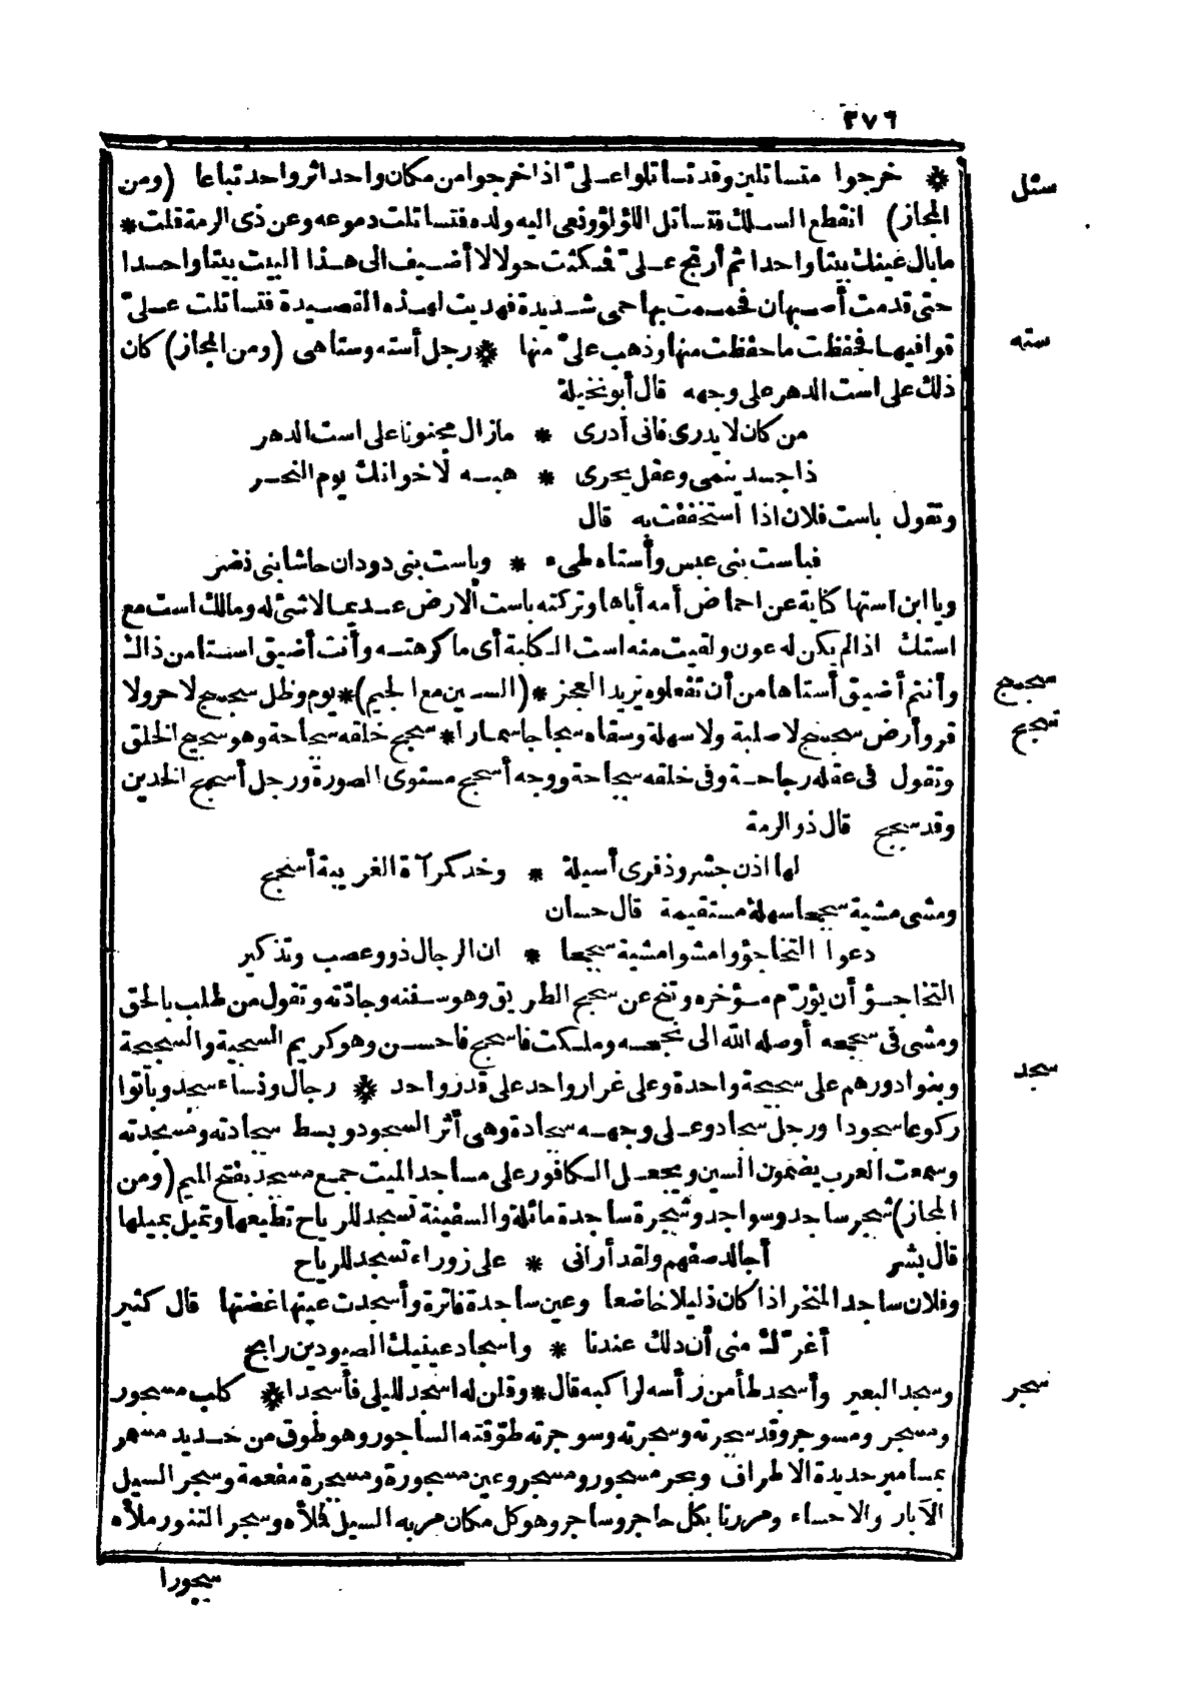 ٢٧٦
ستل
* خرجوا متساتلين وقد تساتلوا على اذا خرجوا من مكان واحد اثر واحد تباعا (ومن
المجاز) انقطع السلك فتساتل اللؤلؤ ونعى اليه ولده فتساتلت دموعه وعن ذى الرمة قلت *
مابال عينك بيتا واحدا ثم أرتج على فمكثت حولا لا أضيف الى هذا البيت بيتا واحدا
حتى قدمت أصبهان فحممت بها حمى شديدة فهديت لهذه القصيدة فتساتلت على
سته
قوافيها فحفظت ما حفظت منها وذهب على منها * رجل أسته وستاهى (ومن المجاز) كان
ذلك على است الدهر على وجهه قال أبو نخيلة
من كان لا يدرى فانى أدرى * مازال مجنونا على است الدهر
ذا جسد ينمى وعقل يحرى * هبه لاخوانك يوم النحر
وتقول باست فلان اذا استخففت به قال
فباست بنى عبس وأستاه طيء * وباست بنى دودان حاشا بنى نضر
ويا ابن استها كناية عن احماض أمه أباها وتركته باست الارض عديما لا شئ له ومالك است مع
استك اذا لم يكن له عون ولقيت منه است الكلبة أى ما كرهته وأنت أضيق استا من ذاك
سجسج
وأنتم أضيق أستاها من أن تفعلوه يريد العجز * (السين مع الجيم) * يوم وظل سجسج لا حر ولا
سجح
قر وأرض سجسج لا صلبة ولا سهلة وسقاه سجاجا سمارا * سجح خلقه سجاحة وهو سجيح الخلق
وتقول فى عقله رجاحة وفى خلقه سجاحة ووجه أسجح مستوى الصورة ورجل أسجح الخدين
وقد سجح قال ذو الرمة
لها اذن حشر وذفرى أسيلة * وخد كمرآة الغريبة أسجح
ومشى مشية سجحا سهلة مستقيمة قال حسان
دعوا التخاجؤ وامشوا مشية سجحا * ان الرجال ذوو عصب وتذكير
التخاجؤ أن يؤرّم مؤخره وتنح عن سجح الطريق وهو سننه وجادّته وتقول من طلب بالحق
ومشى فى سجحه أوصله الله الى نجحه وملكت فاسجح فاحسن وهو كريم السجية والسجيحة
سجد
وبنوا دورهم على سجيحة واحدة وعلى غرار واحد على قدر واحد * رجال ونساء سجد وباتوا
ركوعا سجودا ورجل سجاد وعلى وجهه سجادة وهى أثر السجود وبسط سجادته ومسجدته
وسمعت العرب يضمون السين ويجعل الكافور على مساجد الميت جمع مسجد بفتح الميم (ومن
المجاز) شجر ساجد وسواجد وشجرة ساجدة مائلة والسفينة تسجد للرياح تطيعها وتميل بميلها
قال بشر أجالد صفهم ولقد أرانى * على زوراء تسجد للرياح
وفلان ساجد المنخر اذا كان ذليلا خاضعا وعين ساجدة فاترة وأسجدت عينها غضتها قال كثير
أغرّك منى أن دلك عندنا * واسجاد عينيك الصيودين رابح
سجر
وسجد البعير وأسجد طأمن رأسه لراكبه قال * وقلن له اسجد لليلى فأسجدا * كلب مسجور
ومسجر ومسوجر وقد سجرته وسجرته وسوجرته طوّقته الساجور وهو طوق من حديد مسمر
بمسامير حديدة الاطراف وبحر مسجور ومسجر وعين مسجورة ومسجرة مفعمة وسجر السيل
الآبار والاحساء ومررنا بكل حاجر وساجر وهو كل مكان مر به السيل فملأه وسجر التنور ملأه
سجورا